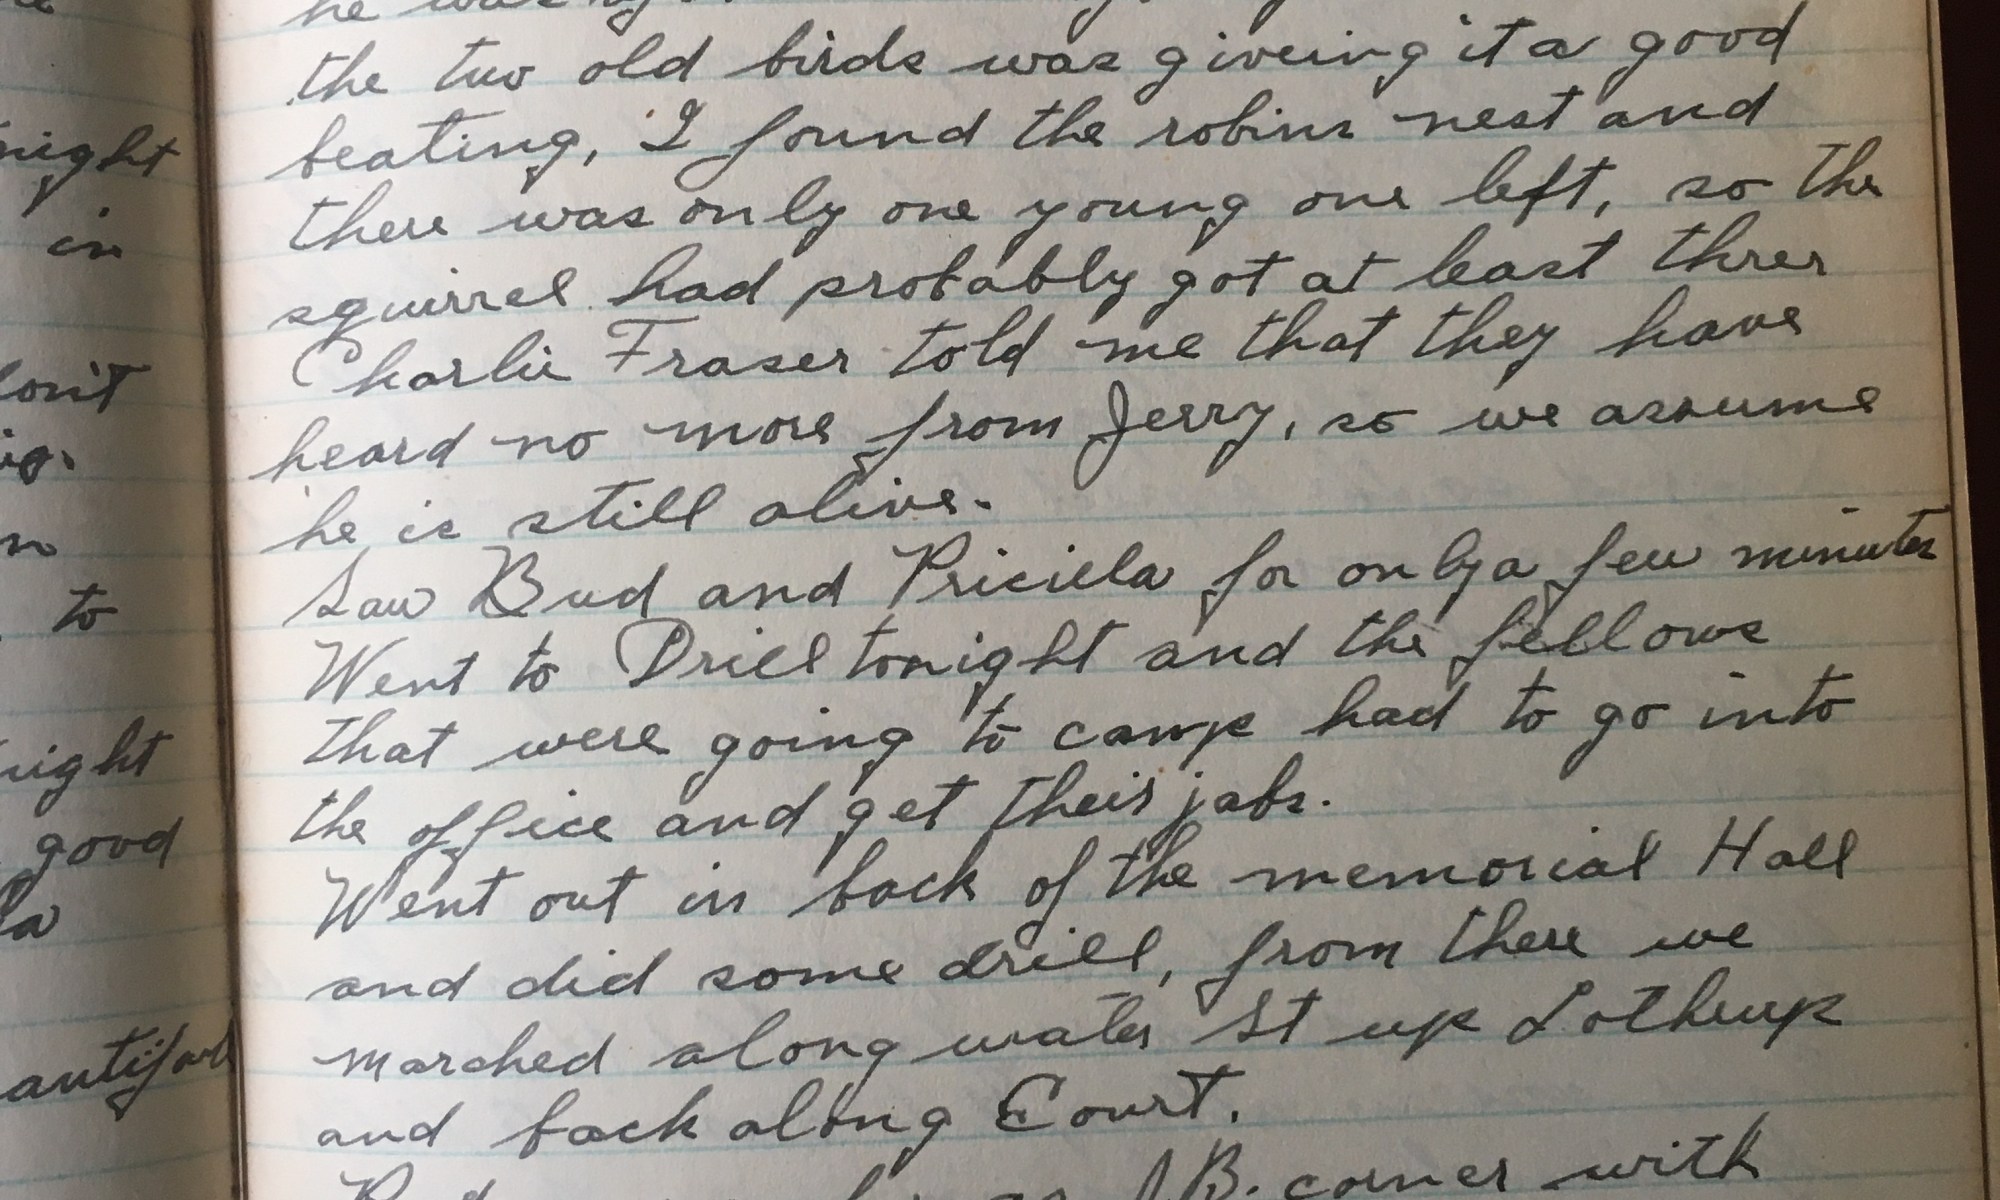 he was
the two old birds was giveing it a good
beating, I found the robins nest and
there was only one young one left, so the
squirrel had probably got at least three
Charlie Fraser told me that they have
heard no more from Jerry, so we assume
he is still alive.
Saw Bud and Pricilla for only a few minutes
Went to Drill tonight and the fellows
that were going to camp had to go into
the office and get their jabs.
Went out in back of the memorial Hall
and did some drill, from there we
marched along water St up Lothrup
and back along Court.
corner with
night
in
to
good